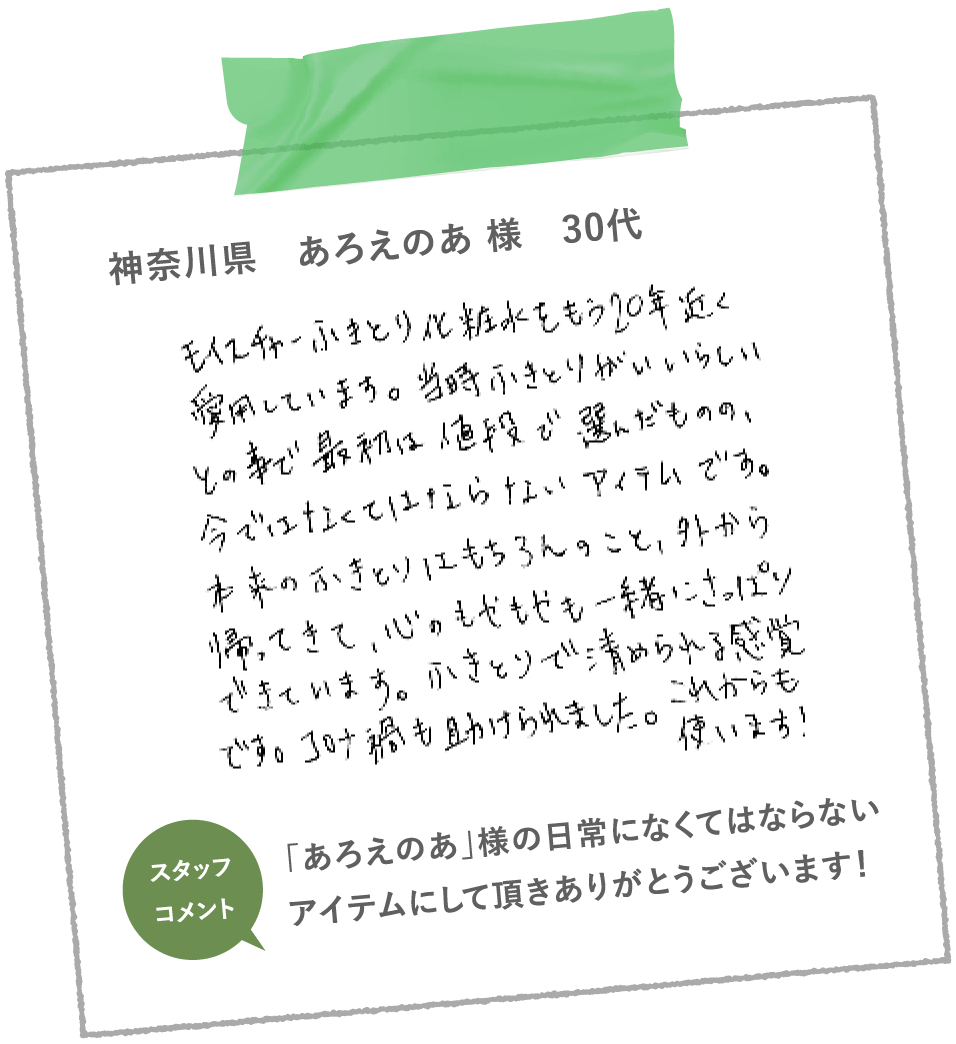 神奈川県 あろえのあ 様 30代
モイスチャーふきとり化粧水をもう20年近く
愛用しています。当時ふきとりがいいらしい
との事で最初は値段で選んだものの、
今ではなくてはならないアイテムです。
本来のふきとりはもちろんのこと、外から
帰ってきて、心のもやもやも一緒にさっぱり
できています。ふきとりで清められる感覚
です。コロナ禍も助けられました。これからも
使います!
スタッフ
コメント
「あろえのあ」様の日常になくてはならない
アイテムにして頂きありがとうございます!